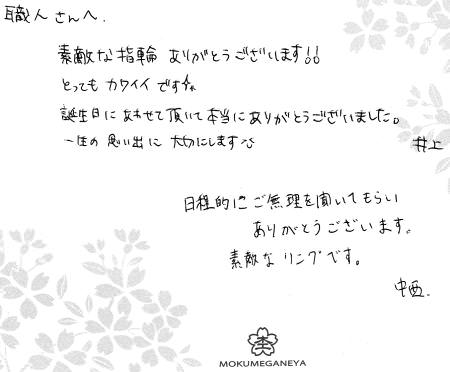 職人さんへ.
素敵な指輪 ありがとうございます!!
とっても カワイイです
誕生日に あわせて 頂いて 本当に ありがとうございました。
一生の 思い出に 大切にします
井上
日程的に ご無理を聞いてもらい
ありがとうございます。
素敵な リングです。
中西.
MOKUMEGANEYA